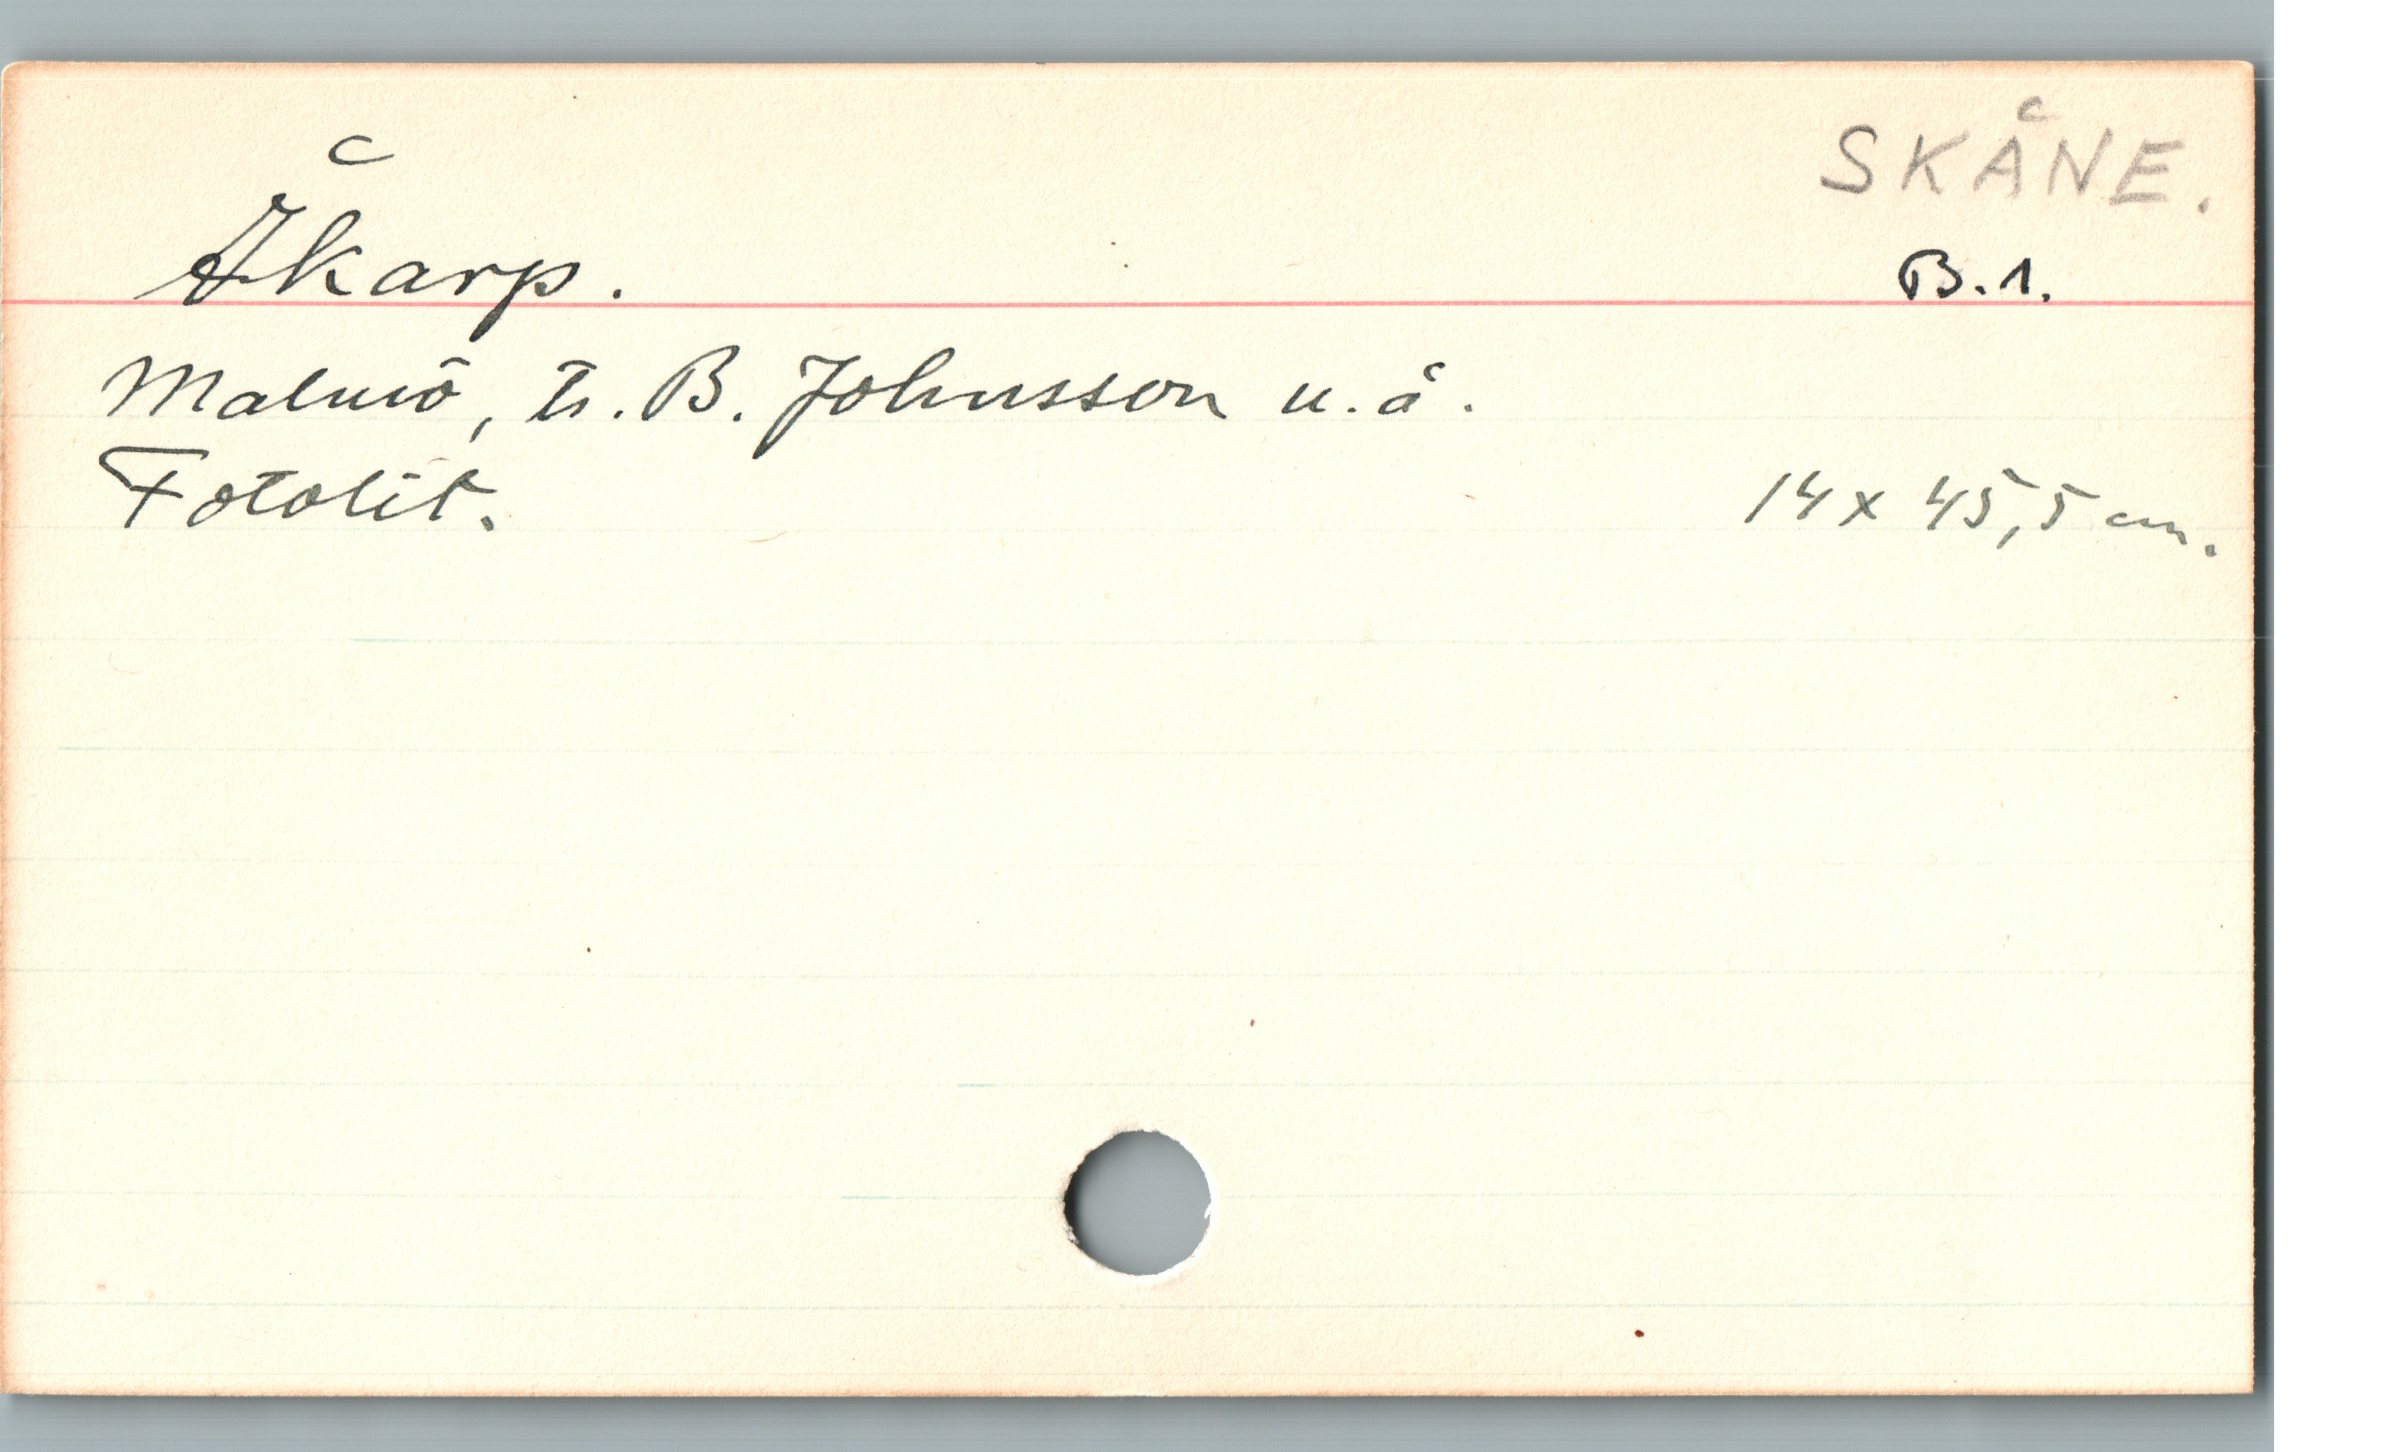 SKÅNE.
Åkarp.
B.1.
Malmö, tr. B. Johnsson u.å.
Fotolit.
14 x 45,5 cm.